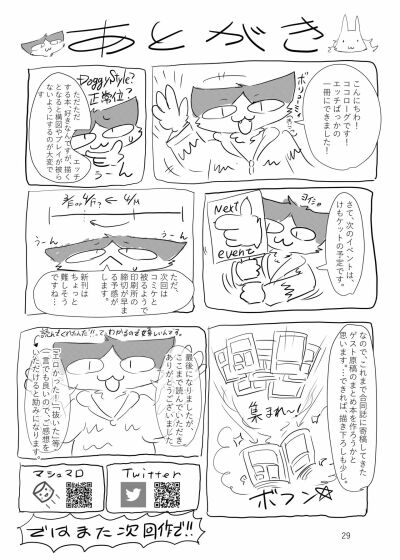 あとがき
こんにちわ!
ココローグです!
エッチばっかの
一冊にできました!
ボリューミィ
DoggyStyle?
正常位?
ただただ
エッチ
する本、好きなんですが、描く
となると構図やプレイが被ら
ないようにするのが大変で
うーん
さて、次のイベントは、
けもケットの予定です。
ヨだっ。
Next
event
うーん
うーん
ただ、
次回は
コミケと
被るようで
印刷所の
締切が早ま
る予感が
します。
新刊は
ちょっと
難しそう
ですね…
なので、これまで合同誌に寄稿してきた
ゲスト原稿のまとめ本を作ろうかと
思います。…できれば、描き下ろしも少し。
集まれ〜!
ボフン☆
最後になりましたが、
ここまで読んでいただき
ありがとうございました。
「エロかった!」「抜いた」等
一言でも良いので、ご感想を
いただけると励みになります。
マシュマロ
Twitter
ではまた次回作で!!
29